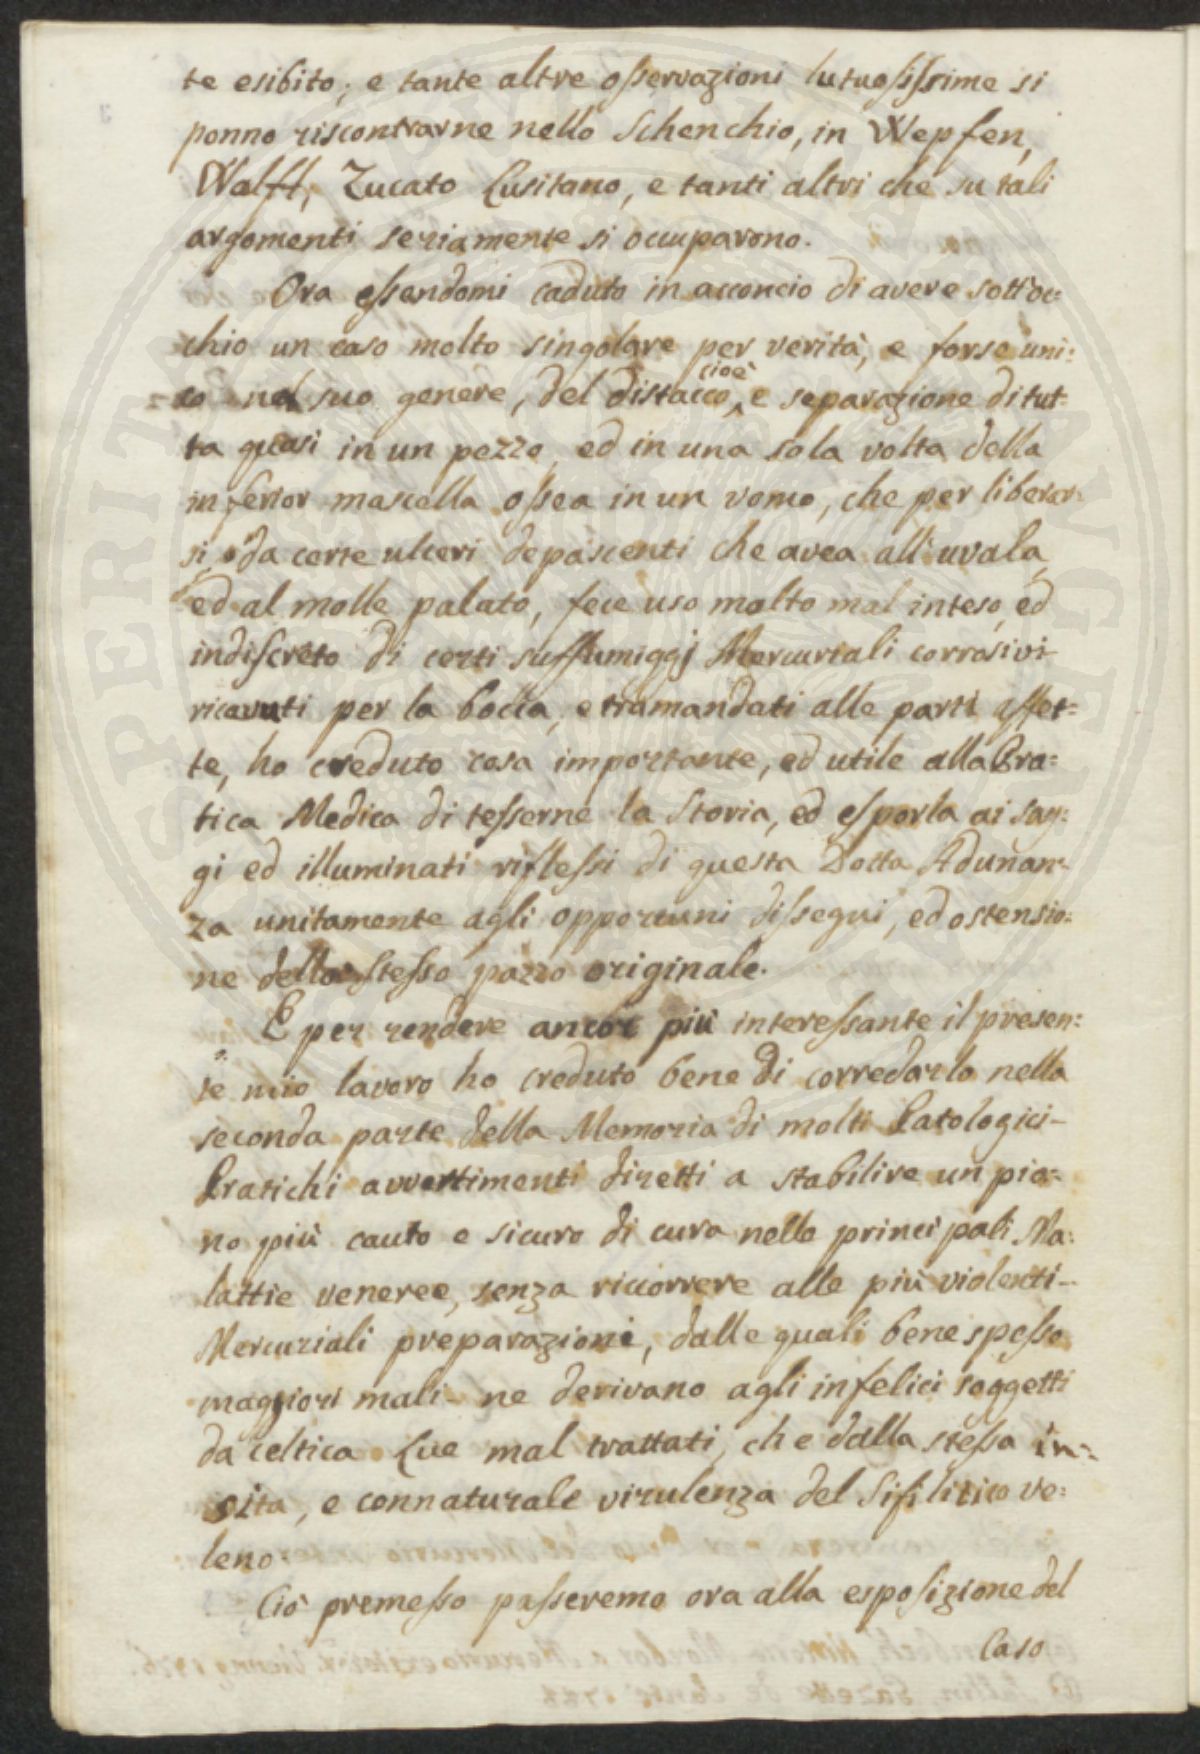 te esibito; e tante altre osservazioni lutuosissime si
ponno riscontrarne nello Schenchio, in Wepfen,
Walfft, Zucato Lusitano, e tanti altri che su tali
argomenti seriamente si occuparono.
Ora essendomi caduto in acconcio di avere sott'oc=
chio un caso molto singolare per verità, e forse uni=
co nel suo genere, del distacco, cioè e separazione di tut=
ta quasi in un pezzo, ed in una sola volta della
inferior mascella ossea in un uomo, che per liberar=
si da certe ulceri depascenti che avea all'uvala,
ed al molle palato, fece uso molto mal inteso, ed
indiscreto di certi suffumiggj Mercuriali corrosivi
ricevuti per la bocca, e tramandati alle parti affet=
te, ho creduto cosa importante, ed utile alla Pra=
tica Medica di tesserne la Storia, ed esporla ai sag=
gi ed illuminati riflessi di questa Dotta Adunan=
za unitamente agli opportuni dissegni, ed ostensio=
ne dello stesso pezzo originale.
E per rendere ancor più interessante il presen=
te mio lavoro ho creduto bene di corredarlo nella
seconda parte della Memoria di molti Patologici-
Pratichi avvertimenti diretti a stabilire un pia=
no più cauto e sicuro di cura nelle principali Ma=
lattie veneree, senza riccorrere alle più violenti
Mercuriali preparazioni, dalle quali bene spesso
maggiori mali ne derivano agli infelici soggetti
da celtica Lue mal trattati, che dalla stessa in=
sita, e connaturale virulenza del Sifilitico ve=
leno.
Ciò premesso passeremo ora alla esposizione del
Caso
SPERITAS